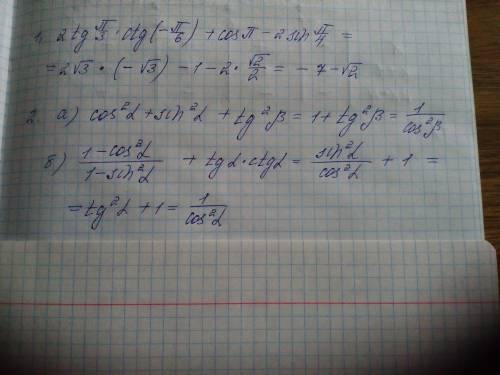 1. 2tg π/3 · ctg(-π/6) + cos π - 2 sin π/4 =
= 2√3 · (-√3) - 1 - 2 · √2/2 = -7 - √2
2. а) cos²α + sin²α + tg²β = 1 + tg²β = 1/cos²β
б) (1-cos²α)/(1-sin²α) + tgα · ctgα = sin²α/cos²α + 1 =
= tg²α + 1 = 1/cos²α